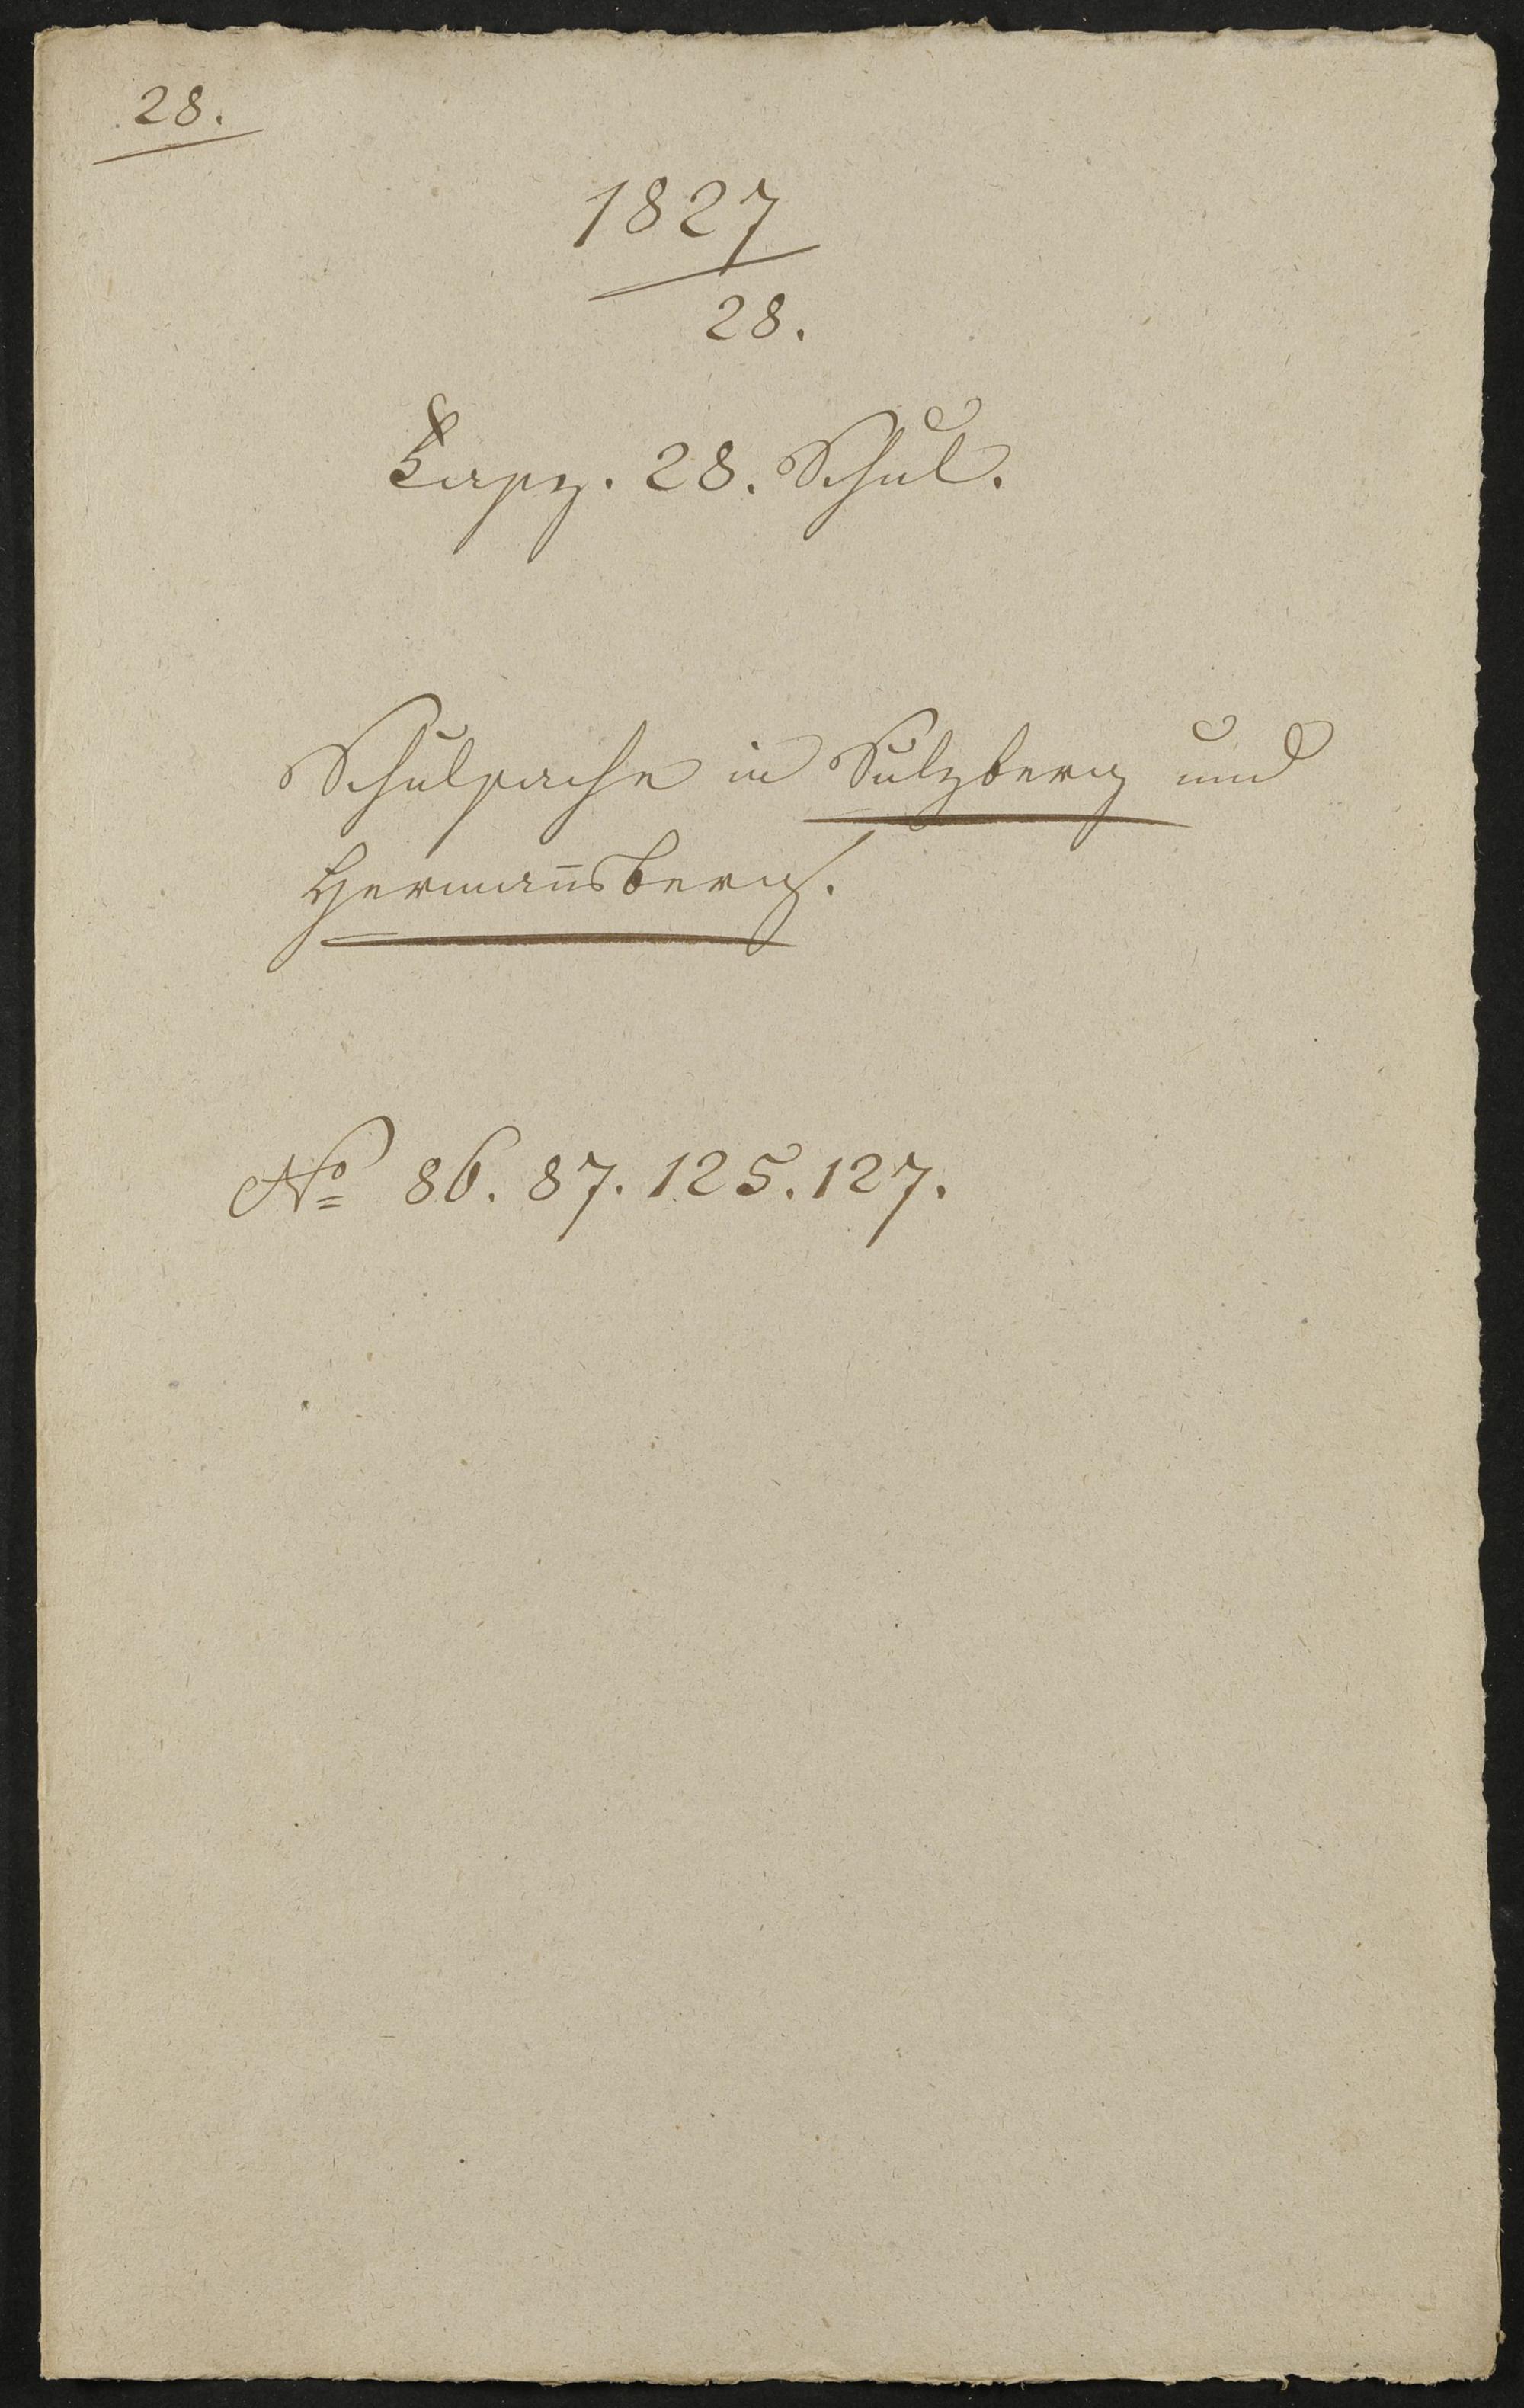 28.
1827
28.
Fasz. 28. Schul.
Schulsache in Sulzberg und
Herman̄sberg.
No 86. 87. 125. 127.